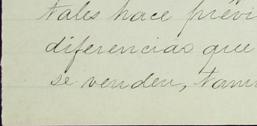 tales hace previ
diferencias que
se venden, tam